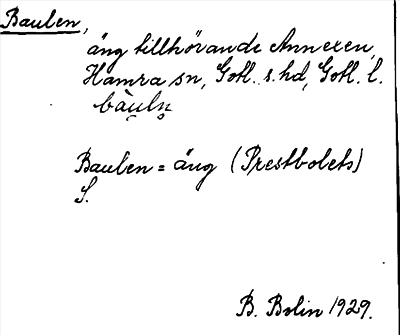 Baulen,
äng tillhörande Annexen,
Hamra sn, Gotl. s. hd, Gotl. l.
bàu̯ln̥
Baulen = äng (Prestbolets)
S.
B. Bolin 1929.